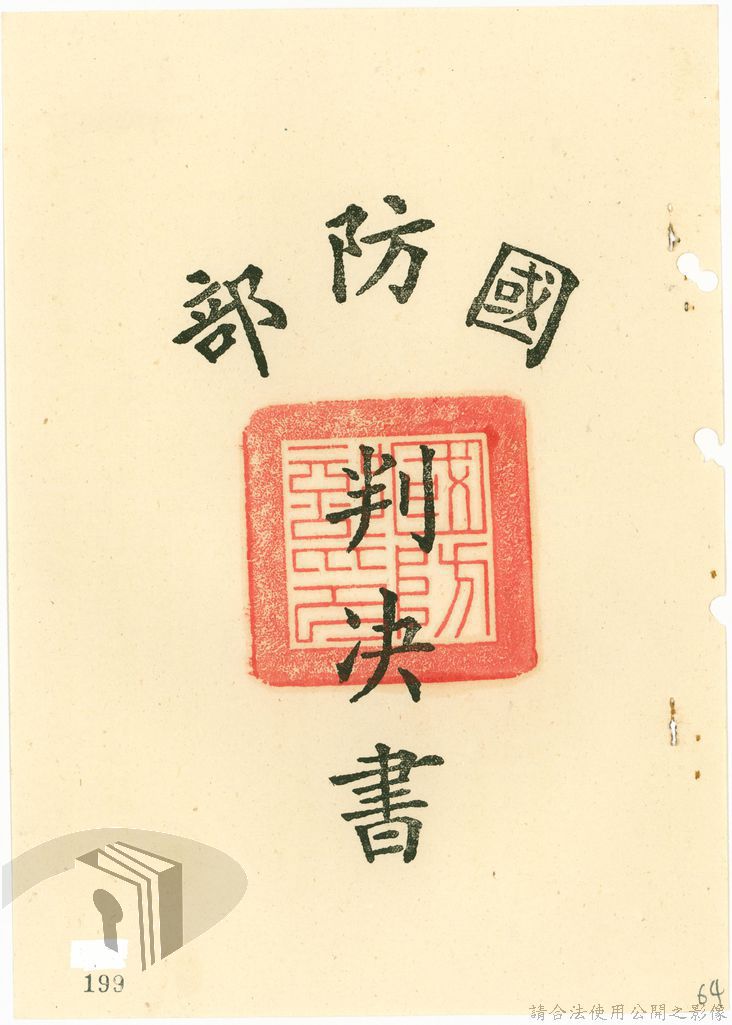 國防部
判決書
國防部印
199
64
請合法使用公開之影像